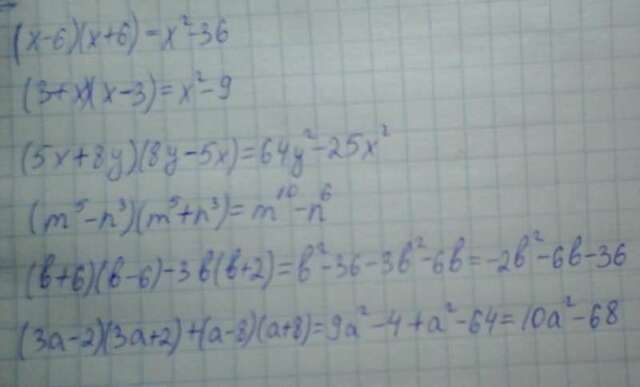 (x-6)(x+6)=x²-36
(3+x)(x-3)=x²-9
(5x+8y)(8y-5x)=64y²-25x²
(m⁵-n³)(m⁵+n³)=m¹⁰-n⁶
(b+6)(b-6)-3b(b+2)=b²-36-3b²-6b=-2b²-6b-36
(3a-2)(3a+2)+(a-8)(a+8)=9a²-4+a²-64=10a²-68